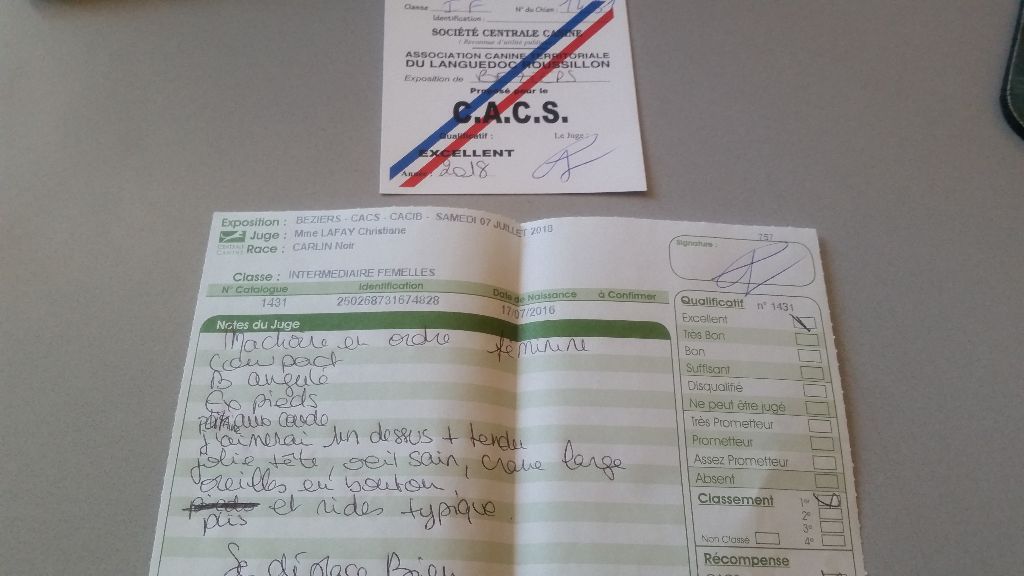 Classe : IF N° du Chien : 1431
Identification :
SOCIÉTÉ CENTRALE CANINE
( Reconnue d'utilité publique )
ASSOCIATION CANINE TERRITORIALE
DU LANGUEDOC ROUSSILLON
Exposition de BEZIERS
Proposé pour le
C.A.C.S.
Qualificatif : Le Juge :
EXCELLENT
Année : 2018
Exposition : BEZIERS - CACS - CACIB - SAMEDI 07 JUILLET 2018
Juge : Mme LAFAY Christiane
Race : CARLIN Noir
CENTRALE CANINE
Classe : INTERMEDIAIRE FEMELLES
N° Catalogue Identification Date de Naissance à Confirmer
1431 250268731674828 17/07/2016
Notes du Juge
Machoire en ordre feminine
Compact
B angulé
Ex pieds
J'aimerai un dessus + tendu
Jolie tête, oeil sain, crane large
oreilles en bouton,
et rides typique
plis
Se déplace Bien
757
Signature :
Qualificatif n° 1431
Excellent
Très Bon
Bon
Suffisant
Disqualifié
Ne peut être jugé
Très Prometteur
Prometteur
Assez Prometteur
Absent
Classement 1e
2e
3e
Non Classé 4e
Récompense